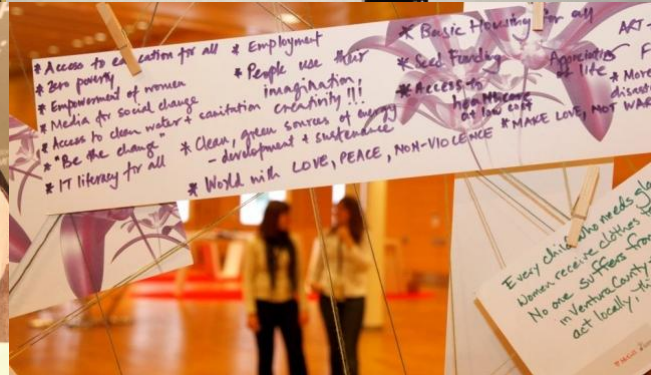 * Access to education for all
* Zero poverty
* Empowerment of women
* Media for social change
* Access to clean water + sanitation
* "Be the change"
* IT literacy for all
* Employment
* People use their
imagination,
creativity !!!
* Clean, green sources of energy
- development + sustenance
* World with LOVE, PEACE, NON-VIOLENCE
* Basic Housing for all
* Seed Funding
* Access to
healthcare
at low cost
* MAKE LOVE, NOT WAR
ART -
Appreciation
of life
* More
Every child who needs
Women receive clothes
No one suffers from
in Ventura County
act locally,